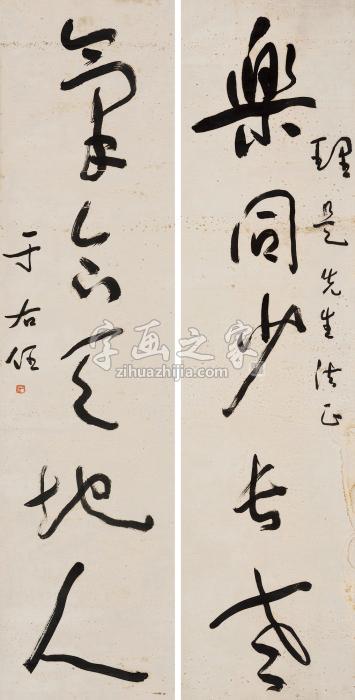 理是先生法正
樂同少長老
氣合天地人
于右任
字画之家
zihuazhijia.com